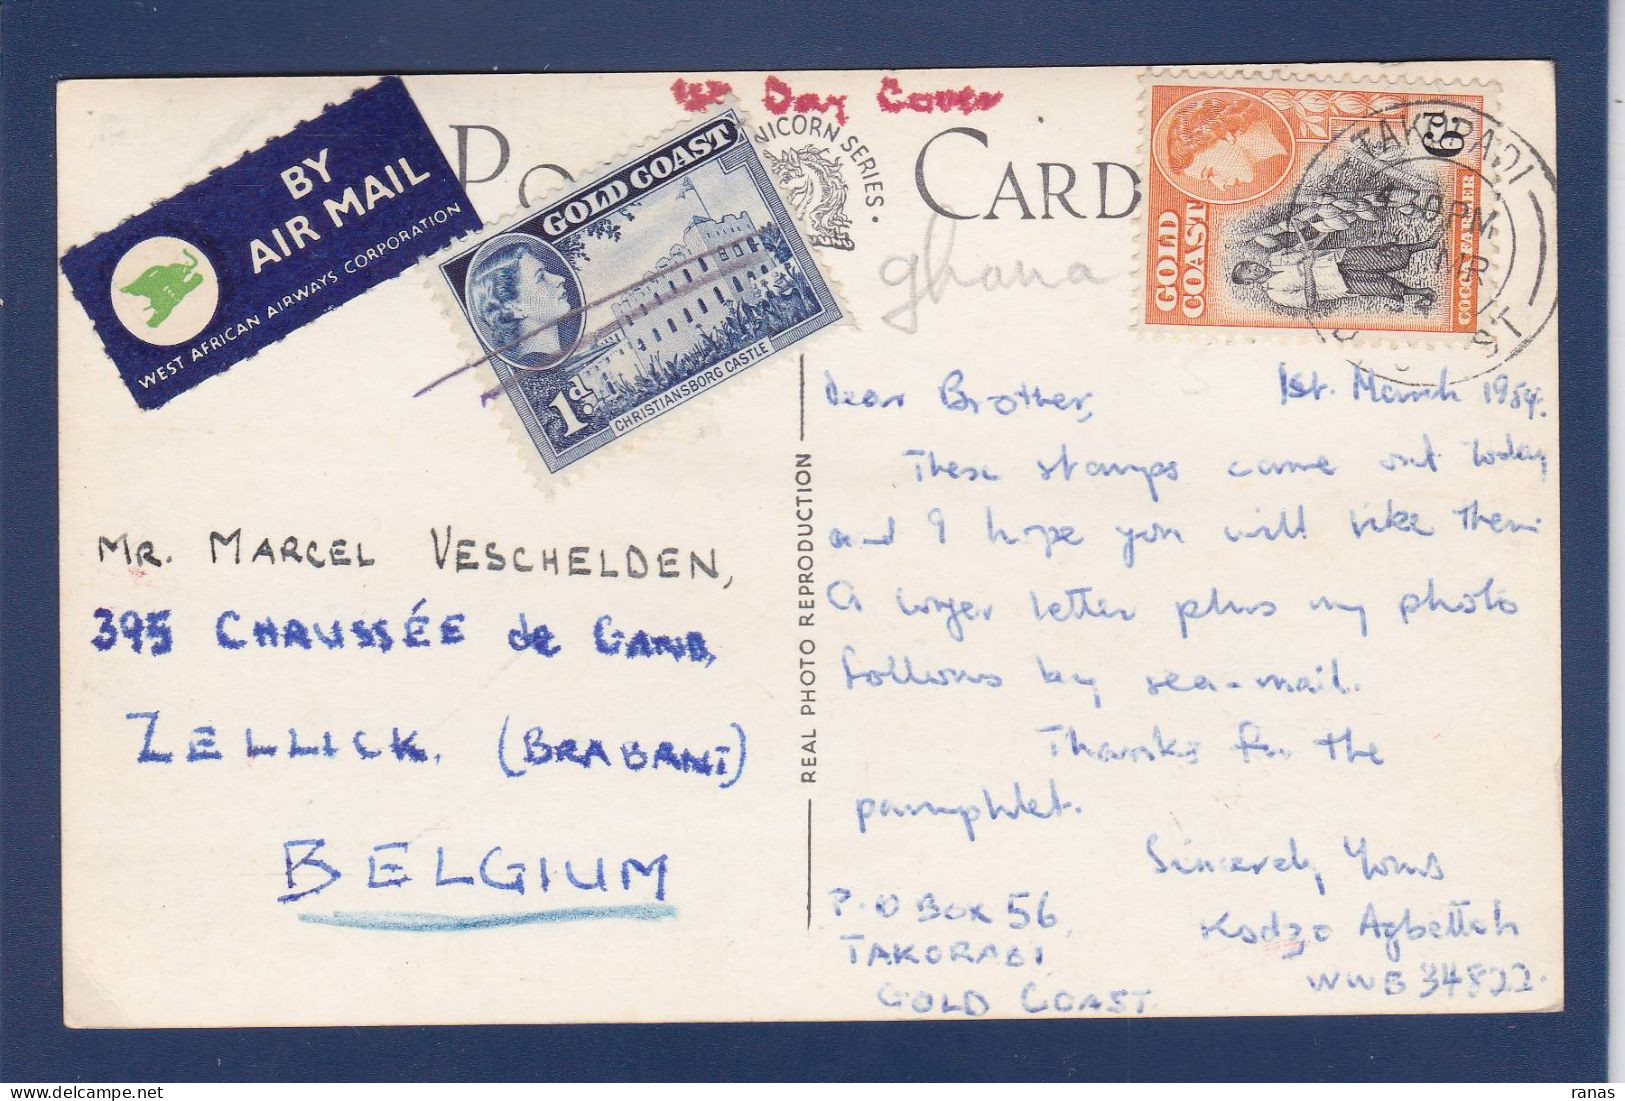 1st Day Cover
BY
AIR MAIL
WEST AFRICAN AIRWAYS CORPORATION
POST CARD
UNICORN SERIES.
GOLD COAST
1d.
CHRISTIANSBORG CASTLE
ghana
6D
GOLD
COAST
COCOA FARMER
TAKORADI
4 30 PM
MR
54
GOLD COAST
REAL PHOTO REPRODUCTION
MR. MARCEL VESCHELDEN,
395 CHAUSSÉE de GAND,
ZELLICK. (BRABANT)
BELGIUM
Dear Brother, 1st. March 1954.
These stamps came out today
and I hope you will like them
A longer letter plus my photo
follows by sea-mail.
Thanks for the
pamphlet.
Sincerely Yours
Kodzo Agbetteh
WWB 34822.
P.O BOX 56,
TAKORADI
GOLD COAST
ranas